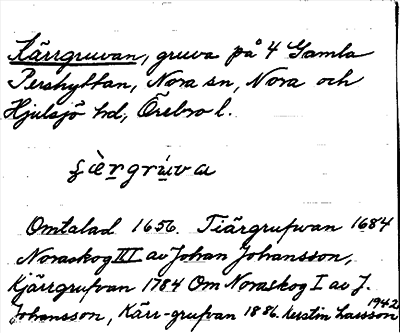 Kärrgruvan, gruva på 4 Gamla
Pershyttan, Nora sn, Nora och
Hjulsjö hd, Örebro l.
ꞩèrgrúva
Omtalad 1656. Tiärgrufwan 1684
Noraskog III av Johan Johansson,
Kjärrgrufvan 1784 Om Noraskog I av J.
Johansson, Kärr-grufvan 1886. Kerstin Larsson
1942